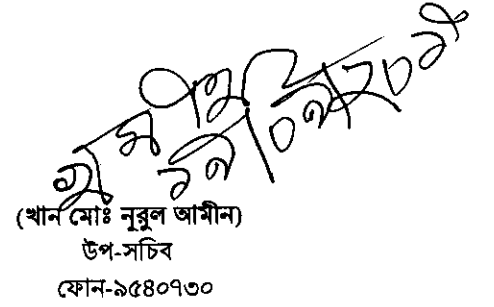 (খান মোঃ নূরুল আমীন)
উপ-সচিব
ফোন-৯৫৪০৭৩০